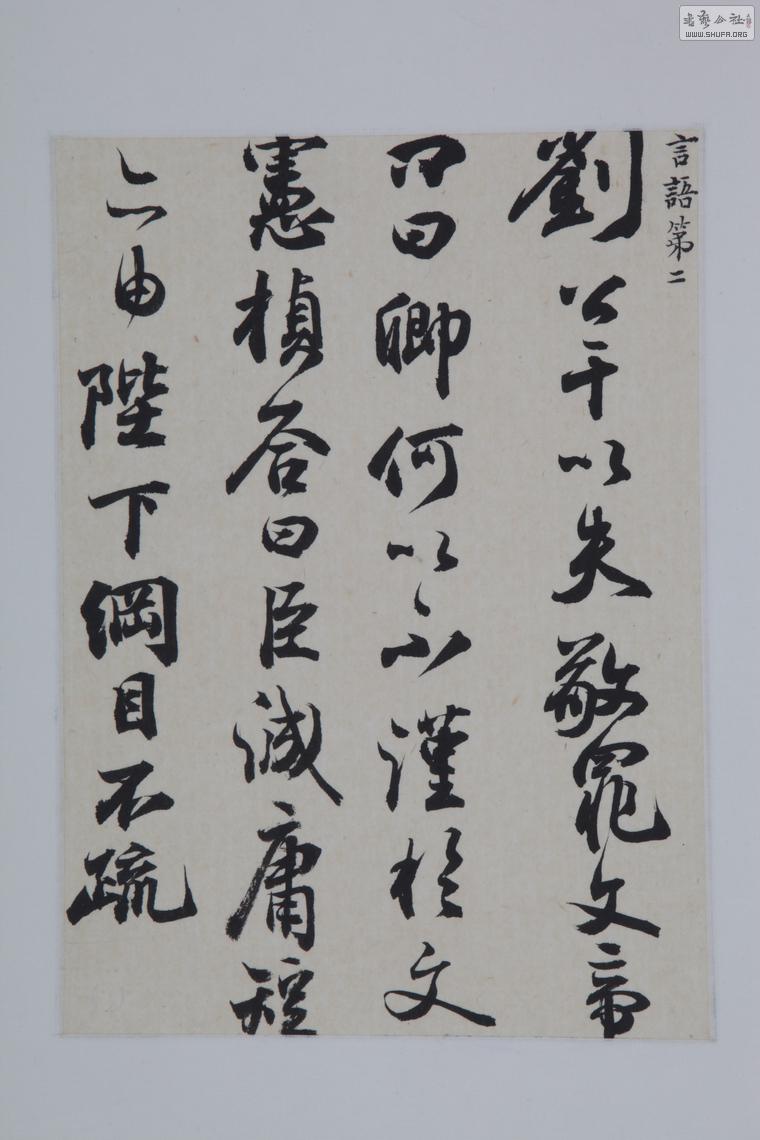 言語第二
劉公干以失敬罹文帝
問曰卿何以不謹於文
憲楨答曰臣誠庸短
亦由陛下綱目不疏
書藝公社
WWW.SHUFA.ORG